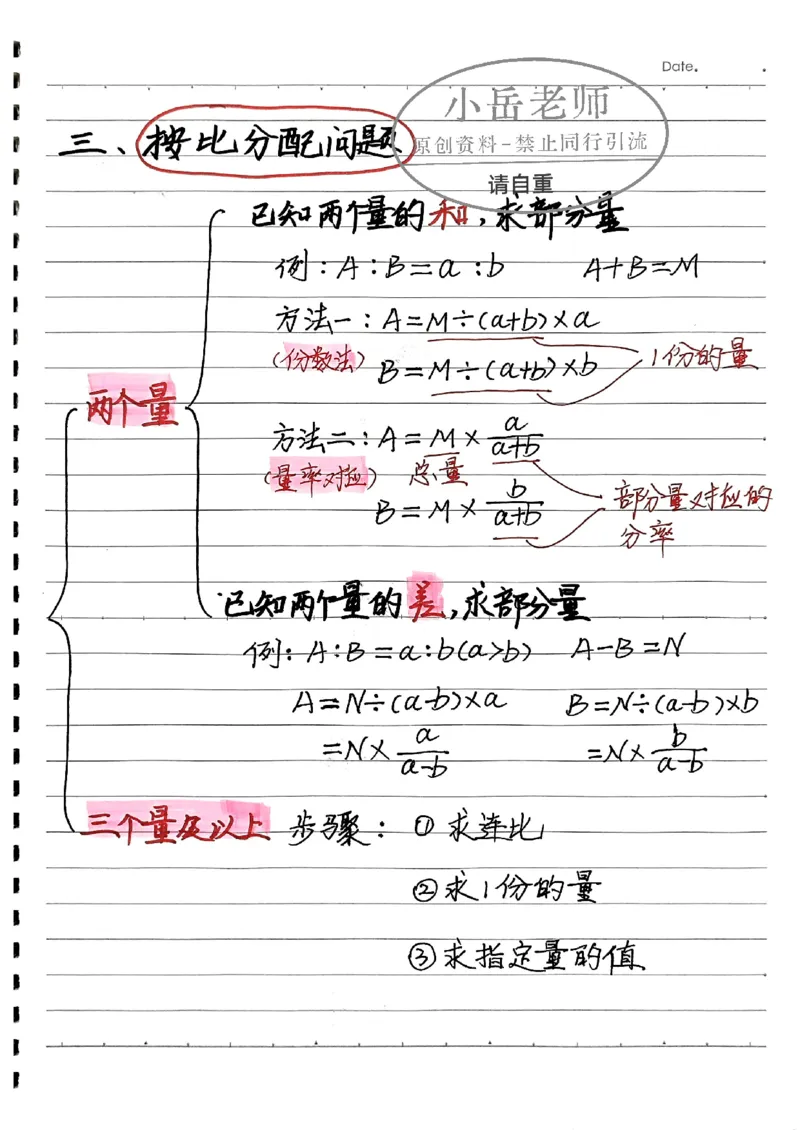 Date.
小岳老师
原创资料-禁止同行引流
请自重
三、按比分配问题
已知两个量的和,求部分量
例:A:B=a:b A+B=M
方法一:A=M÷(a+b)×a
(份数法) B=M÷(a+b)×b 1份的量
两个量
方法二:A=M×a/(a+b)
(量率对应) 总量
B=M×b/(a+b) 部分量对应的
分率
已知两个量的差,求部分量
例:A:B=a:b(a>b) A-B=N
A=N÷(a-b)×a B=N÷(a-b)×b
=N×a/(a-b) =N×b/(a-b)
三个量及以上 步骤:①求连比
②求1份的量
③求指定量的值